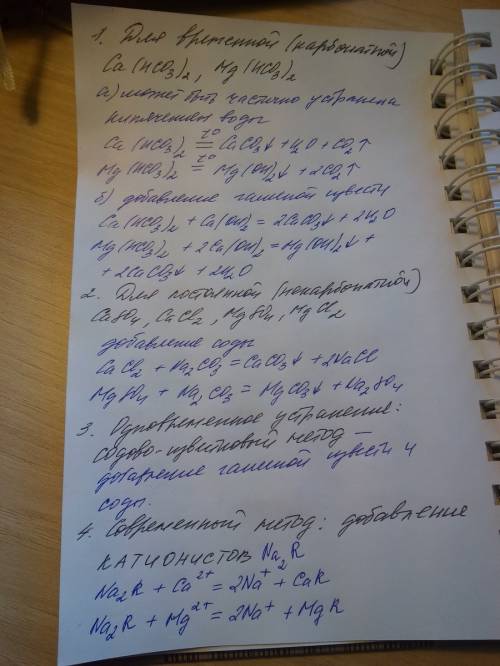 1. Для временной (карбонатной)
Ca(HCO₃)₂, Mg(HCO₃)₂
а) может быть частично устранена
кипячением воды
Ca(HCO₃)₂ =t⁰= CaCO₃↓ + H₂O + CO₂↑
Mg(HCO₃)₂ =t⁰= Mg(OH)₂↓ + 2CO₂↑
б) добавление гашеной извести
Ca(HCO₃)₂ + Ca(OH)₂ = 2CaCO₃↓ + 2H₂O
Mg(HCO₃)₂ + 2Ca(OH)₂ = Mg(OH)₂↓ +
+ 2CaCO₃↓ + 2H₂O
2. Для постоянной (некарбонатной)
CaSO₄, CaCl₂, MgSO₄, MgCl₂
добавление соды
CaCl₂ + Na₂CO₃ = CaCO₃↓ + 2NaCl
MgSO₄ + Na₂CO₃ = MgCO₃↓ + Na₂SO₄
3. Одновременное устранение:
содово-известковый метод —
добавление гашеной извести и
соды.
4. Современный метод: добавление
катионистов Na₂R
Na₂R + Ca²⁺ = 2Na⁺ + CaR
Na₂R + Mg²⁺ = 2Na⁺ + MgR